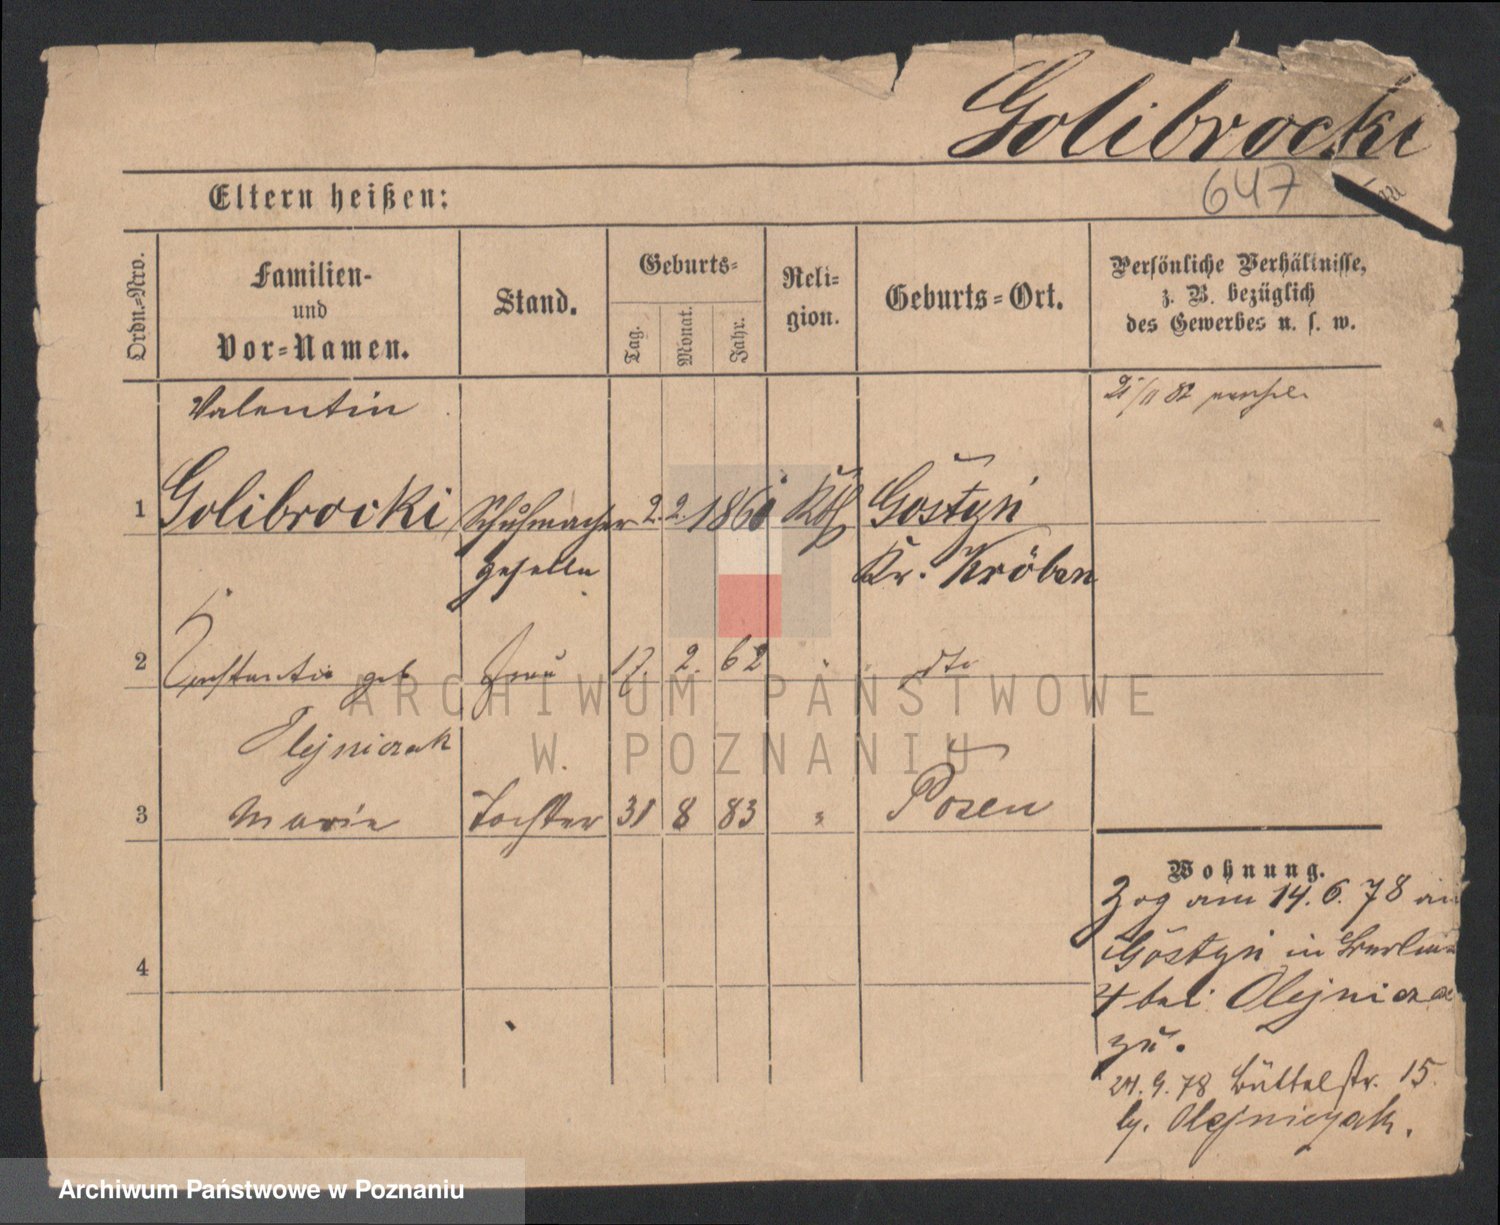 Golibrocki
647
Eltern heißen:
Ordn.-Nro.
Familien-
und
Vor-Namen.
Stand.
Geburts-
Tag.
Monat.
Jahr.
Reli-
gion.
Geburts-Ort.
Persönliche Verhältnisse,
z. B. bezüglich
des Gewerbes u. s. w.
Valentin
1 Golibrocki Schuhmacher 2. 2. 1860 Kth Gostyń
Geselle Kr. Kröben
2 Constantia geb Frau 17. 2. 62 " dto
Olejniczak
3 Marie Tochter 31 8 83 " Posen
4
Wohnung.
Zog am 14. 6. 78 an
Gostyń in
4 bei Olejnicza
zu.
24. 9. 78 Büttelstr. 15.
Olejniczak.
ARCHIWUM PAŃSTWOWE
W POZNANIU
Archiwum Państwowe w Poznaniu